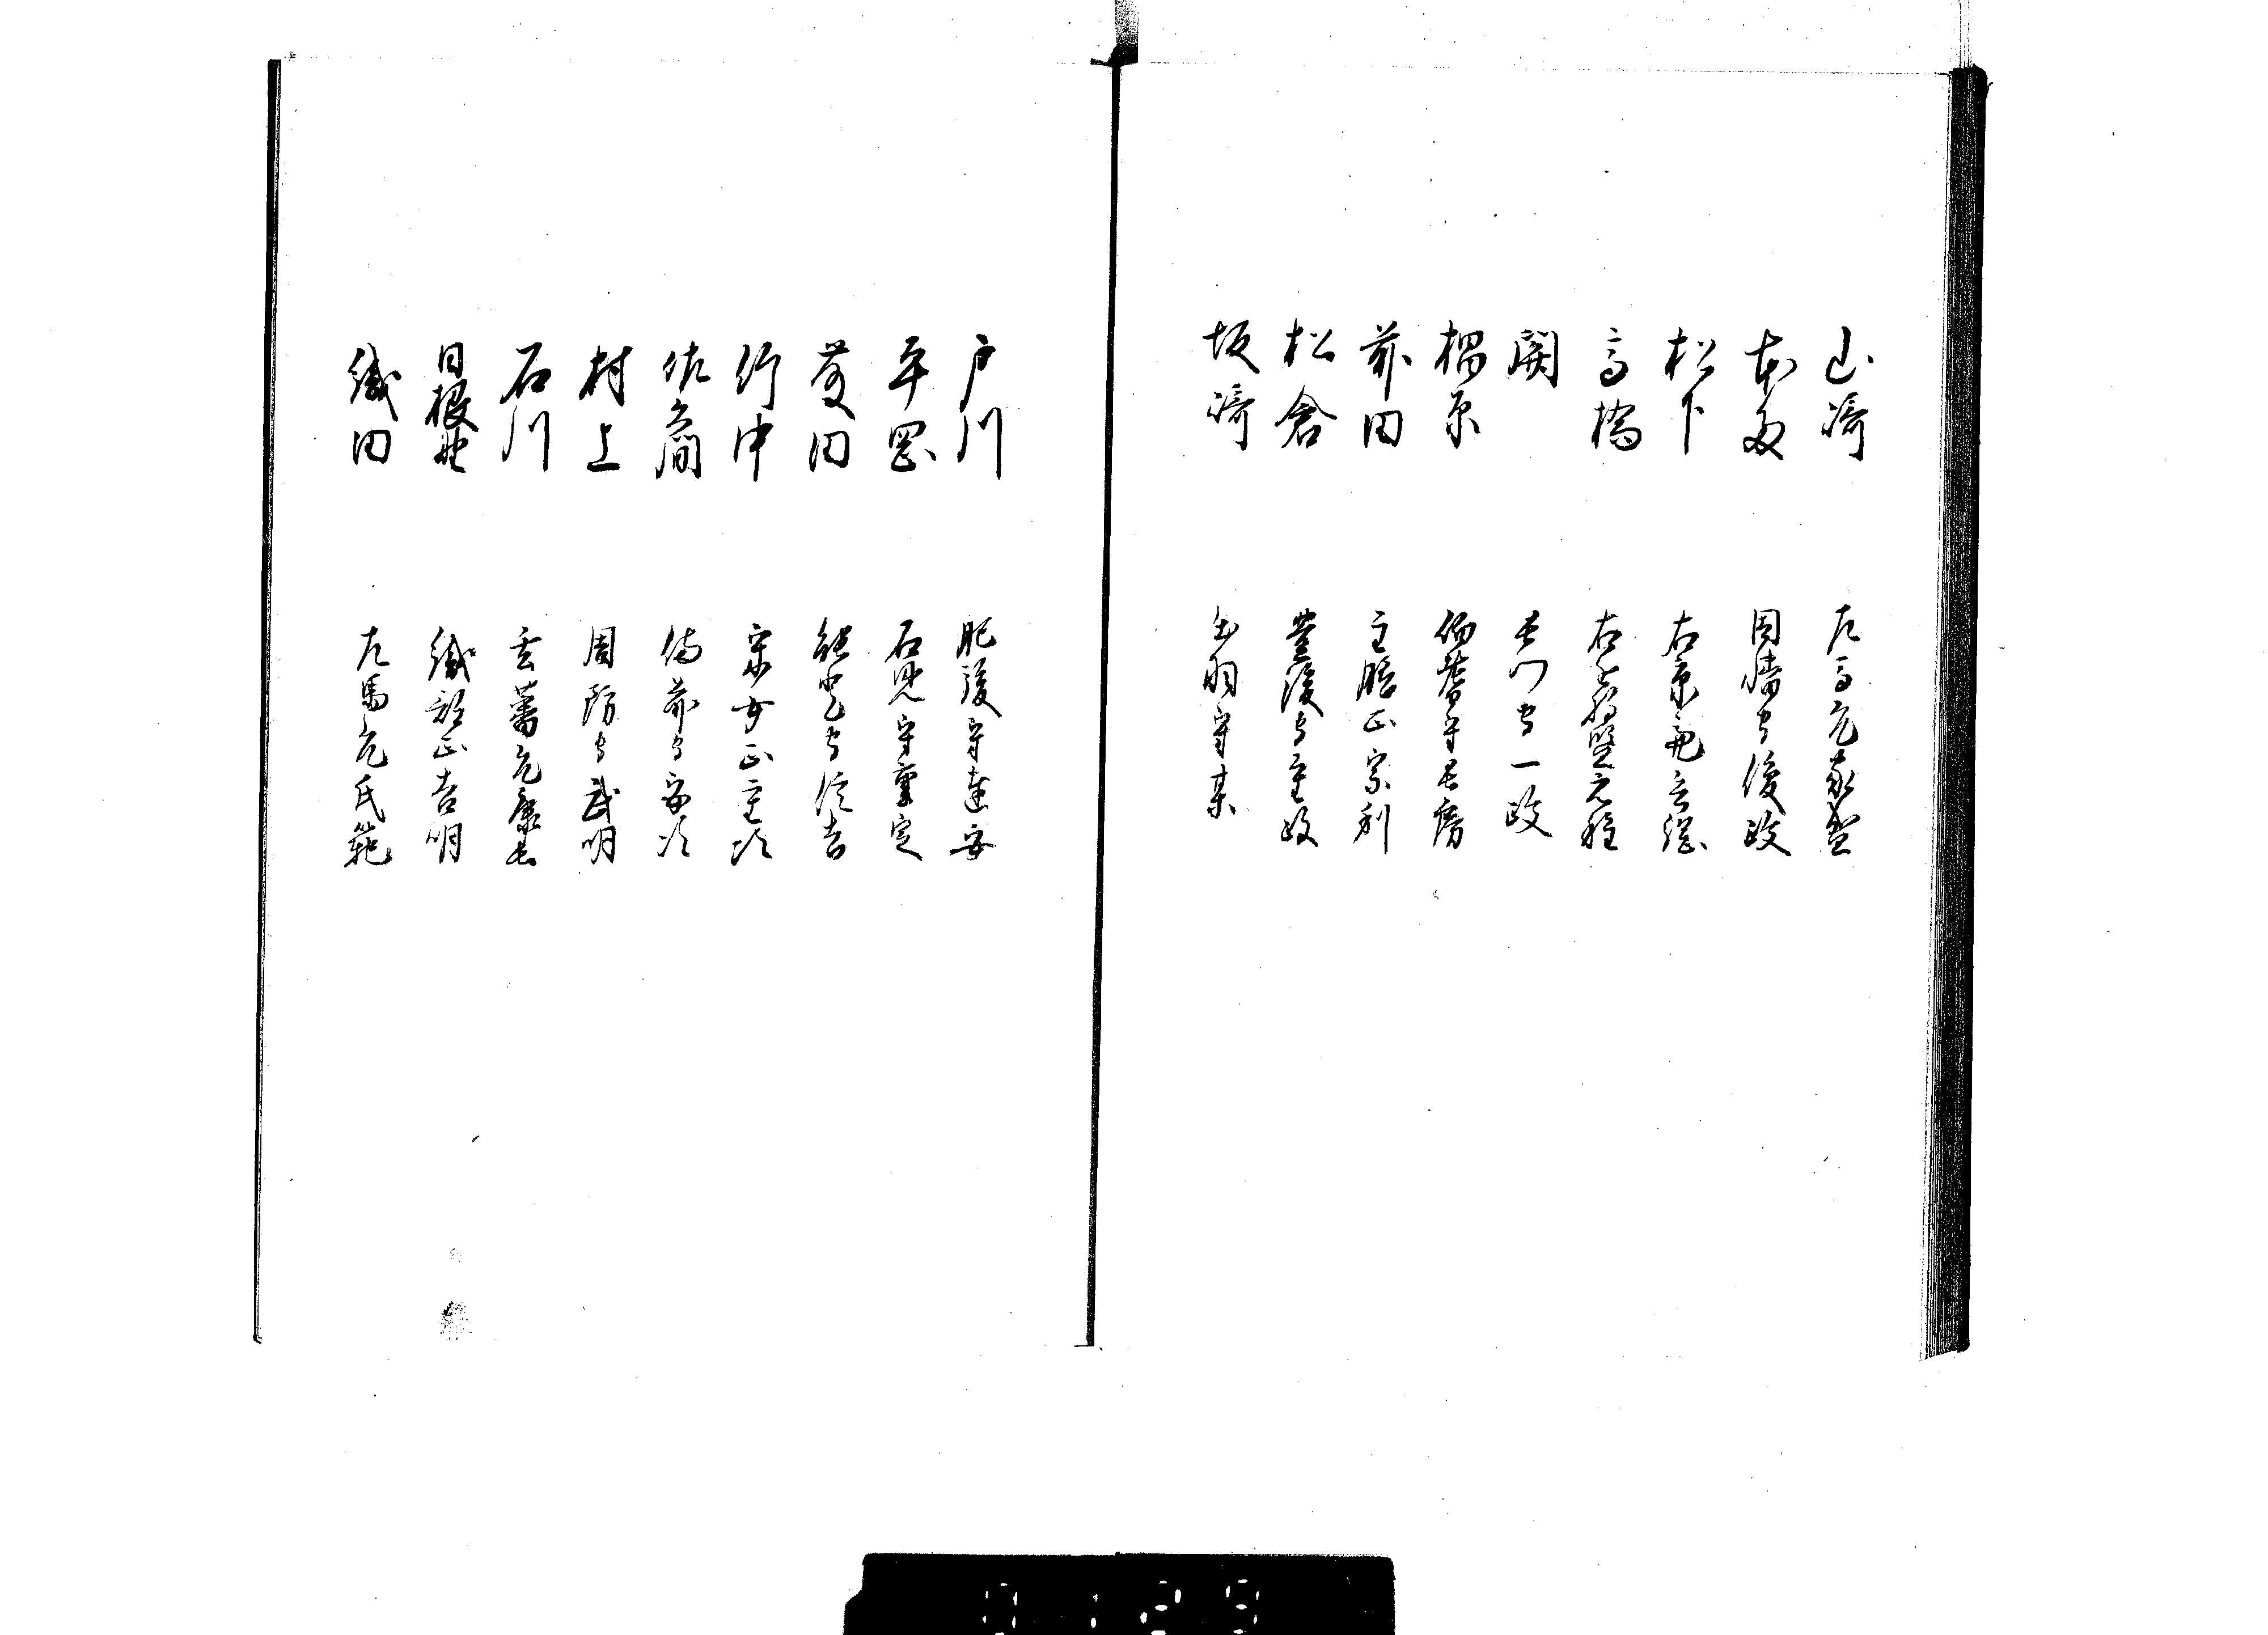 山崎　左馬允家盛
本多　因幡守俊政
松下　右京亮綱
高橋　右近将監元種
関　長門守一政
榲原　伯耆守長房
前田　主膳正宗利
松倉　豊後守重政
坂崎　出羽守某
戸川　肥後守達安
平岡　石見守重定
藤田　能登守信吉
竹中　采女正重次
佐久間　備前守安次
村上　周防守武明
石川　玄蕃允康長
日根野　織部正吉明
織田　左馬允氏範